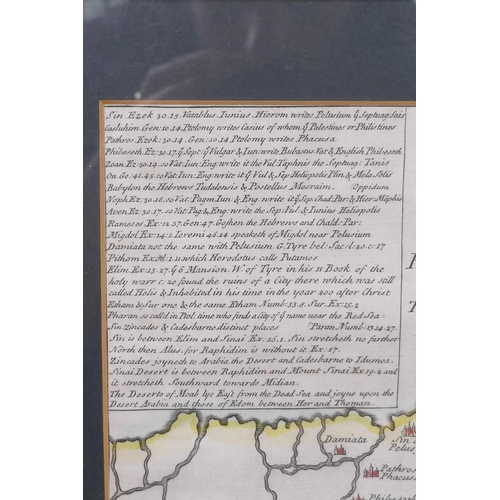 Sin Ezek 30.15. Vatablus. Iunius. Hierom writes Pelusium ỹ Septuag: Sais
Casluhim. Gen: 10.14. Ptolomy writes Casius of whom ỹ Palestines or Philistines
Pathros. Ezek: 30.14. Gen: 10.14 Ptolomy writes Phacusa
Phibeseth. Ez: 30.17. ỹ Sept: ỹ Vulgar & Iun: write Bubastus Vat & English Phibeseth
Zoan. Ez: 30.14. 10 Vat: Iun: Eng: write it the Vul: Taphnis the Septuag: Tanis
On. Ge: 41.45. 10 Vat: Iun: Eng: write it ỹ Vul & Sep: Heliopolis Plin & Mela Solis
Babylon the Hebrews Tudalensis & Postellus Mesraim. Oppidum
Noph. Ez: 30.16. 10 Vat: Pagm: Iun: & Eng: write it ỹ Sep: Chad: Par: & Hier: Mẽphis
Aven Ez: 30.17. 10 Vat: Pag: & Eng: write the Sep: Vul: & Iunius Heliopolis
Rameses Ex: 12.37. Gen: 47. Goshen the Hebrews and Chald: Par:
Migdol. Ex: 14.2. Ieremi 46.14 speaketh of Migdol near Pelusium
Damiata not the same with Pelusium. G. Tyre bel: Sac: l: 20. c: 17
Pithom Ex: 1.11 which Herodotus calls Putamos
Elim. Ex: 15.27. ỹ 6 Mansion. W. of Tyre in his 11 Book of the
holy warr c: 20 found the ruins of a City there which was still
called Helis & Inhabited in his time in the year 200 after Christ
Etham & Sur one & the same Etham Numb: 33.8. Sur. Ex: 15.2
Pharan so call'd in Ptol. time who finds a City of ỹ name near the Red Sea:
Sin Zincades & Cadesbarne distinct places Paran Numb: 13.24.27.
Sin is between Elim and Sinai Ex: 16.1. Sin stretcheth no farther
North then Alus, for Raphidim is without it Ex: 17.
Zincades joyneth to Arabia the Desert and Cadesburne to Idumea.
Sinai Desert is between Raphidim and Mount Sinai Ex: 19.2 and
it stretcheth Southward towards Midian.
The Deserts of Moab lye East from the Dead Sea and joyns upon the
Desert Arabia and those of Edom between Her and Theman.
Damiata
Sin
Pelus
Pathros
Phacusa
Phibeseth